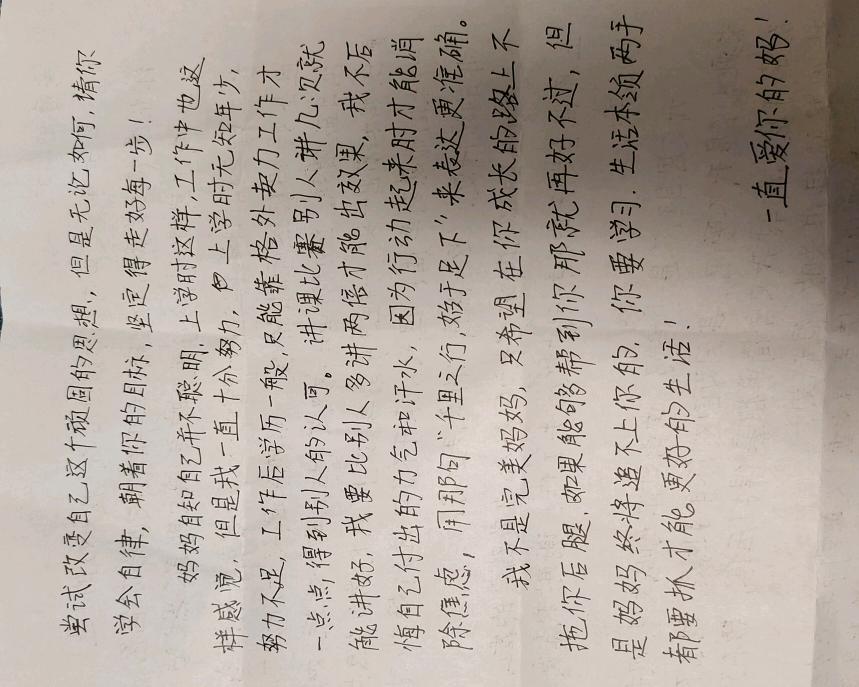 尝试改变自己这个顽固的思想，但是无论如何，请你
学会自律，朝着你的目标，坚定得走好每一步！
妈妈自知自己并不聪明，上学时这样，工作中也这
样感觉，但是我一直十分努力，上学时无知年少，
努力不足，工作后学历一般，只能靠格外卖力工作才
一点点，得到别人的认可。讲课比赛别人讲几次就
能讲好，我要比别人多讲两倍才能出效果，我不后
悔自己付出的力气和汗水，因为行动起来时才能消
除焦虑，用那句“千里之行，始于足下”来表达更准确。
我不是完美妈妈，只希望在你成长的路上不
拖你后腿，如果能够帮到你那就再好不过，但
是妈妈终将追不上你的，你要学习．生活本领两手
都要抓才能更好的生活！
一直爱你的妈！